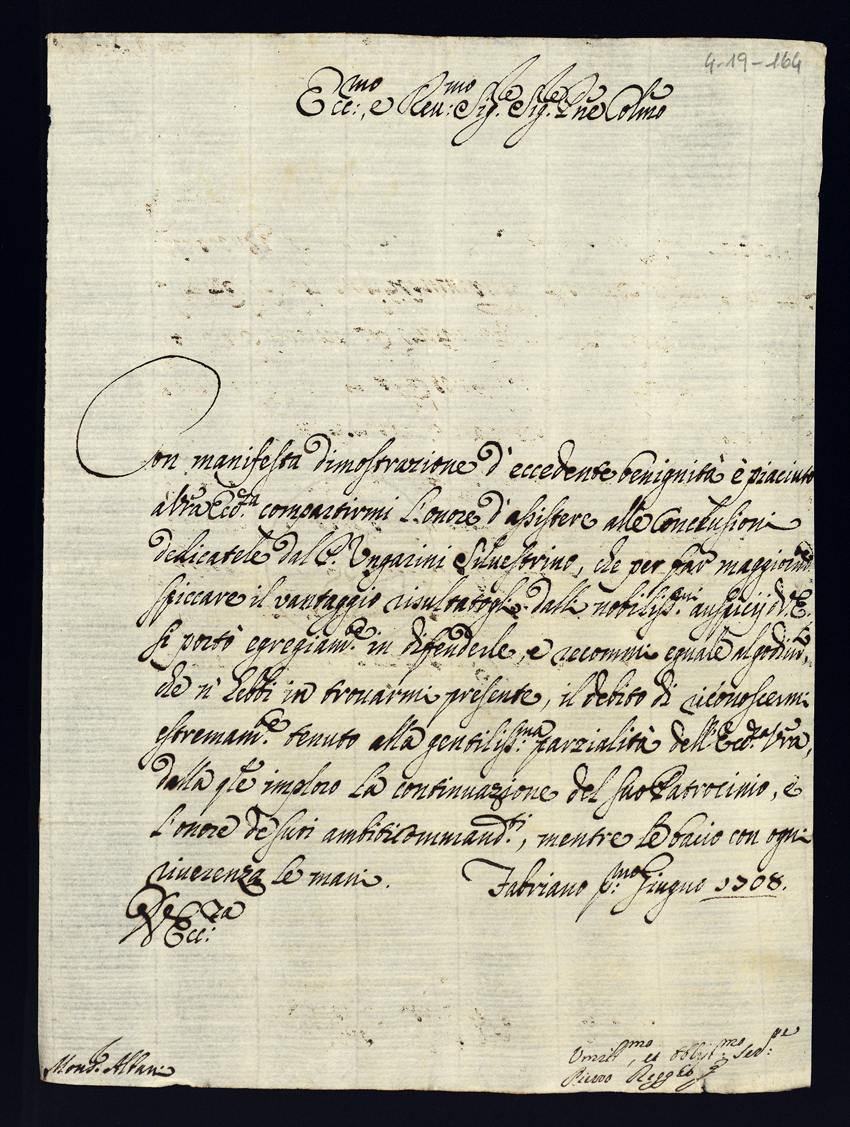 4-19-164
Ecc:mo, e Reu:mo Sig.re Sig.re Pne Colmo
Con manifesta dimostrazione d'eccedente benignità è piaciuto
à Vra Ecc.za compartirmi l'onore d'assistere alle Conclusioni
dedicatele dal P. Ungarini Siluestrino, che per far maggiorm.te
spiccare il vantaggio risultatogli dalli nobiliss.mi auspicij d. V. E.
si portò egregiam.te in difenderle, e reco mmi eguale al godim.to,
che n'hebbi in trouarmi presente, il debito di riconoscermi
estremam.te tenuto alla gentiliss.ma parzialità dell'Ecc.za Vra,
dalla qle imploro la continuazione del suo Patrocinio, e
l'onore de suoi ambiti commandi, mentre le bacio con ogni
riuerenza le mani. Fabriano p:mo Giugno 1708.
D V Ecc:za
Mons.r Albani
Umil.mo, et obblig.mo Ser:re
Pietro